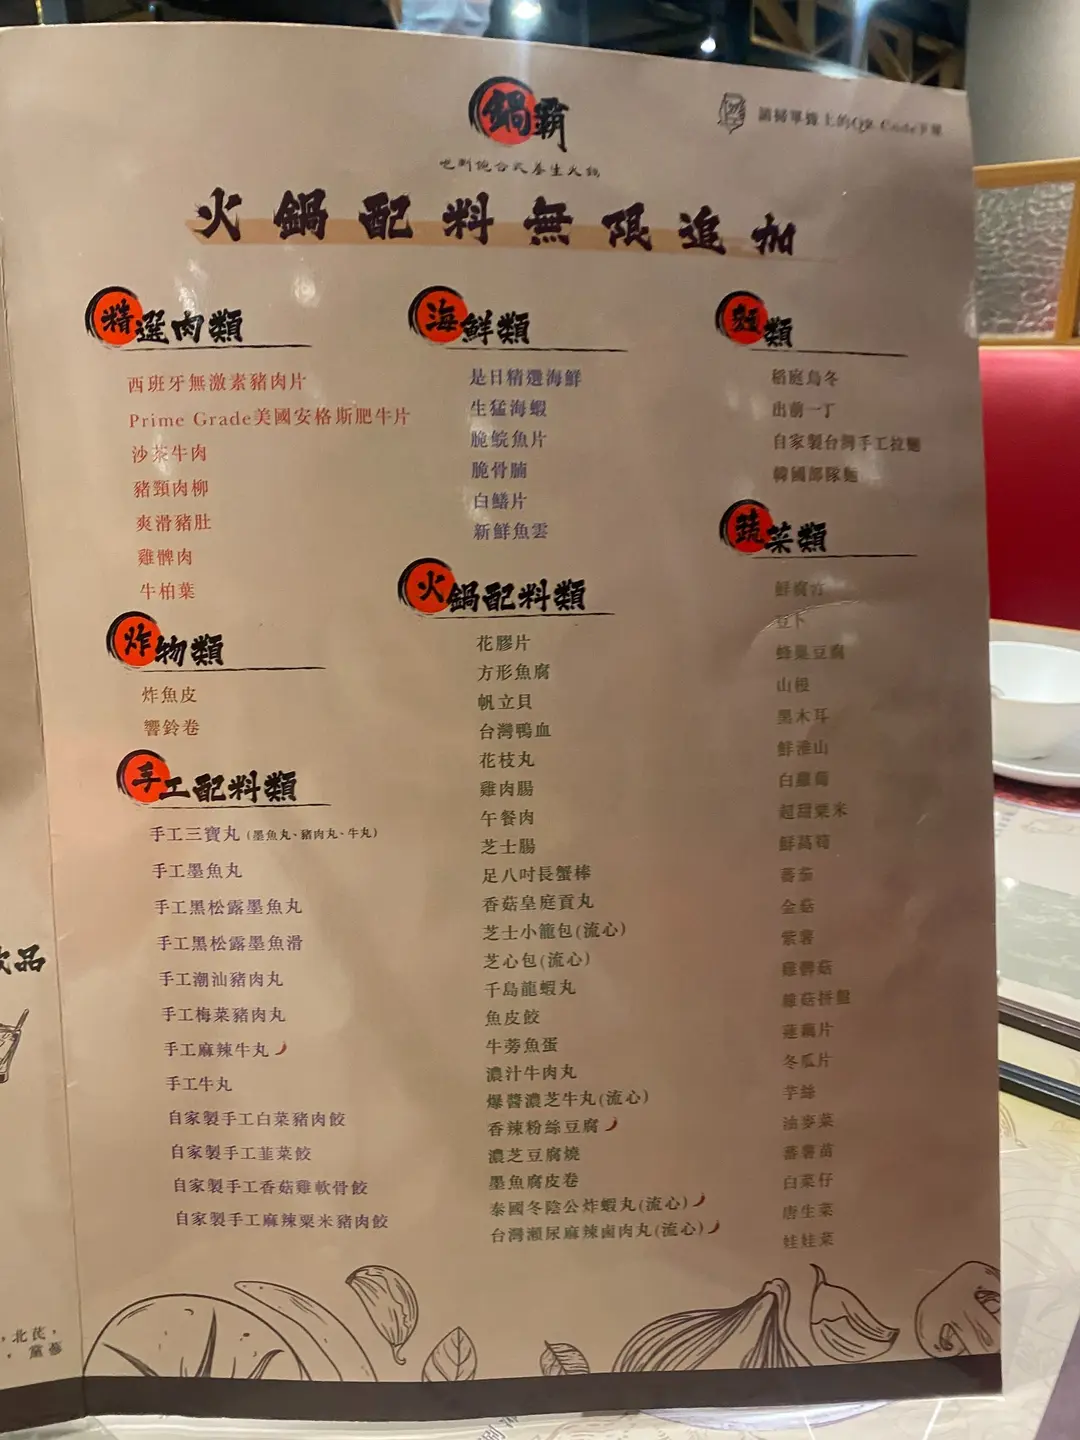 鍋霸
吃到飽台式養生火鍋
請掃單據上的QR Code下單
火鍋配料無限追加
精選肉類
西班牙無激素豬肉片
Prime Grade美國安格斯肥牛片
沙茶牛肉
豬頸肉柳
爽滑豬肚
雞髀肉
牛柏葉
炸物類
炸魚皮
響鈴卷
手工配料類
手工三寶丸(墨魚丸、豬肉丸、牛丸)
手工墨魚丸
手工黑松露墨魚丸
手工黑松露墨魚滑
手工潮汕豬肉丸
手工梅菜豬肉丸
手工麻辣牛丸
手工牛丸
自家製手工白菜豬肉餃
自家製手工韮菜餃
自家製手工香菇雞軟骨餃
自家製手工麻辣粟米豬肉餃
海鮮類
是日精選海鮮
生猛海蝦
脆鯇魚片
脆骨腩
白鱔片
新鮮魚雲
火鍋配料類
花膠片
方形魚腐
帆立貝
台灣鴨血
花枝丸
雞肉腸
午餐肉
芝士腸
足八吋長蟹棒
香菇皇庭貢丸
芝士小籠包(流心)
芝心包(流心)
千島龍蝦丸
魚皮餃
牛蒡魚蛋
濃汁牛肉丸
爆醬濃芝牛丸(流心)
香辣粉絲豆腐
濃芝豆腐燒
墨魚腐皮卷
泰國冬陰公炸蝦丸(流心)
台灣瀨尿麻辣鹵肉丸(流心)
麵類
稻庭烏冬
出前一丁
自家製台灣手工拉麵
韓國部隊麵
蔬菜類
鮮腐竹
豆卜
蜂巢豆腐
山根
黑木耳
鮮淮山
白蘿蔔
超甜粟米
鮮萵筍
蕃茄
金菇
紫薯
雞髀菇
雜菇拼盤
蓮藕片
冬瓜片
芋絲
油麥菜
蕃薯苗
白菜仔
唐生菜
娃娃菜
飲品
，北芪，
，黨蔘